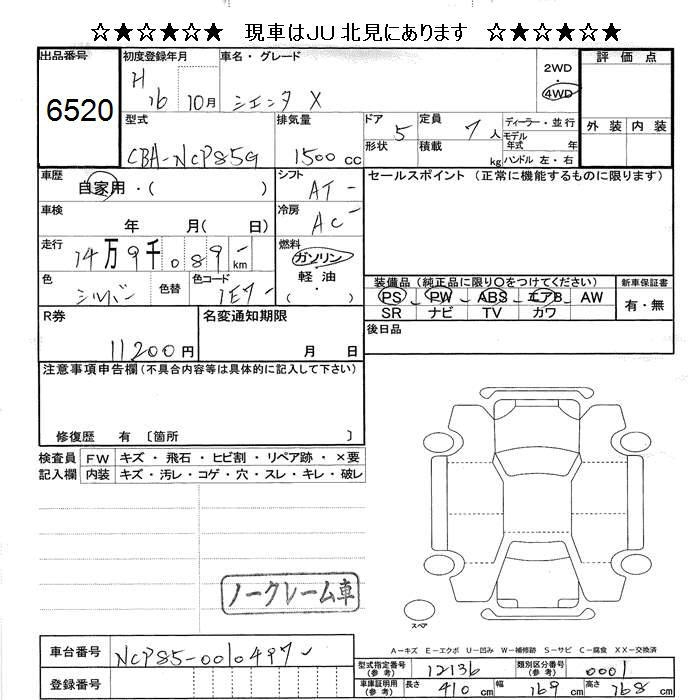 ☆★☆★☆★ 現車はJU北見にあります ☆★☆★☆★
出品番号 初度登録年月 車名・グレード 2WD 評価点
6520 H 16 10月 シエンタ X 4WD
型式 排気量 ドア 定員 ディーラー・並行 外装 内装
CBA-NCP85G 1500cc 5 7人 モデル年式 年
形状 積載 kg ハンドル 左・右
車歴 自家用・( ) シフト AT セールスポイント (正常に機能するものに限ります)
車検 年 月( 日) 冷房 AC
走行 14万9千089km 燃料 ガソリン
軽油
・( )
色 シルバー 色替 色コード 1E7
装備品 (純正品に限り○をつけてください) 新車保証書
PS PW ABS エアB AW 有・無
SR ナビ TV カワ
R券 11200円 名変通知期限 月 日 後日品
注意事項申告欄 (不具合内容等は具体的に記入して下さい)
修復歴 有 〔箇所 〕
検査員 FW キズ・飛石・ヒビ割・リペア跡・×要
記入欄 内装 キズ・汚レ・コゲ・穴・スレ・キレ・破レ
ノークレーム車
スペア
A-キズ E-エクボ U-凹み W-補修跡 S-サビ C-腐食 XX-交換済
車台番号 NCP85-0010497
登録番号
型式指定番号(参考) 12136 類別区分番号(参考) 0001
車庫証明用(参考) 長さ 410cm 幅 169cm 高さ 168cm